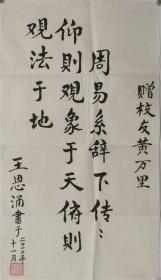 赠校友黄万里
周易系辞下传：
仰则观象于天俯则
观法于地
王恩涌书于
二〇〇〇年
十一月